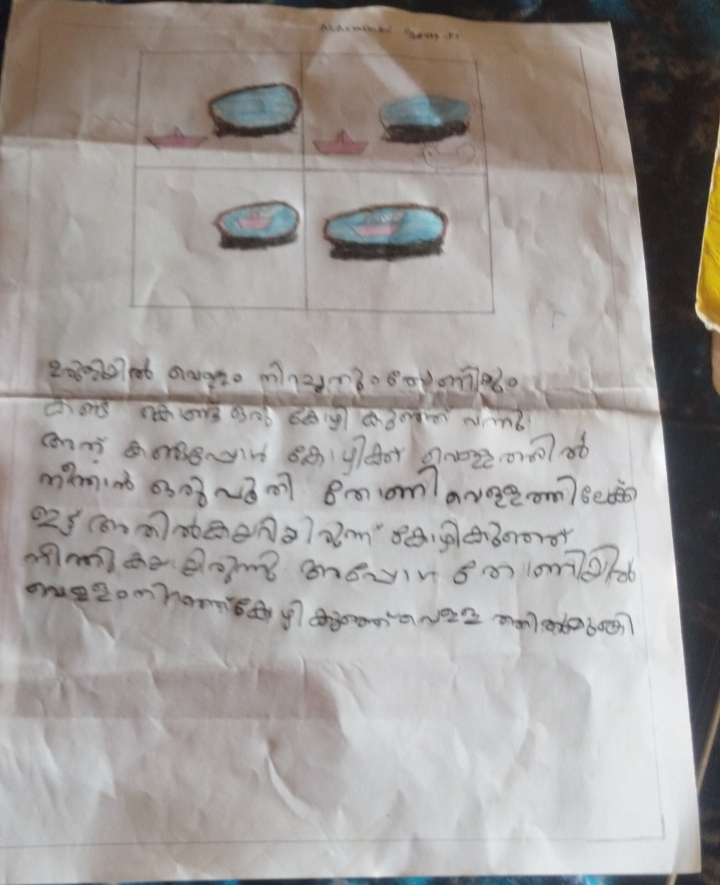 ഉരുളിയിൽ വെള്ളം നിറച്ചതും തോണിയും
കണ്ട് കൊണ്ട് ഒരു കോഴി കുഞ്ഞ് വന്നു
അത് കണ്ടപ്പോൾ കോഴിക്ക് വെള്ളത്തിൽ
നീന്താൻ ഒരു പൂതി തോണി വെള്ളത്തിലേക്ക്
ഇട്ട് അതിൽ കയറിയിരുന്ന് കോഴികുഞ്ഞ്
നീന്തി കയായിരുന്നു അപ്പോൾ തോണിയിൽ
വെള്ളം നിറഞ്ഞ് കോഴി കുഞ്ഞ് വെള്ള ത്തിൽ മുങ്ങി